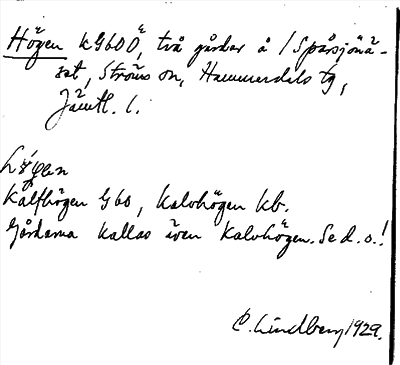 Högen kG600, två gårdar å /Spårsjönä-
set, Ströms sn, Hammerdals tg,
Jämtl. l.
Kalfhögen G60, Kalvhögen kb.
Gårdarna kallas även Kalvhögen. Se d.o.!
C. Lindberg 1929.